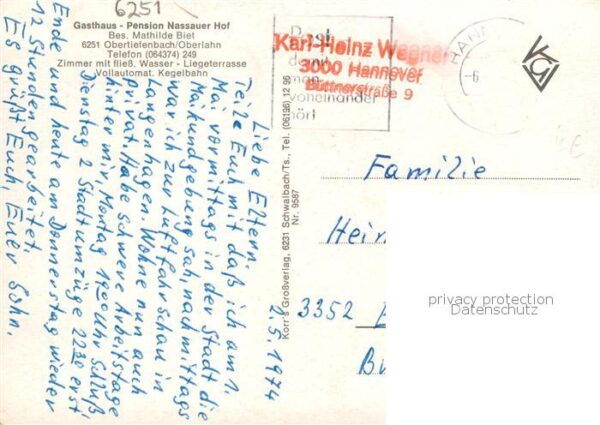 6251
Gasthaus - Pension Nassauer Hof
Bes. Mathilde Biet
6251 Obertiefenbach/Oberlahn
Telefon (064374) 249
Zimmer mit fließ. Wasser - Liegeterrasse
Vollautomat. Kegelbahn
2.5.1974
Liebe Eltern.
Teile Euch mit daß ich am 1.
Mai vormittags in der Stadt die
Maikundgebung sah, nachmittags
war ich zur Luftfahrschau in
Langenhagen. Wohne nun auch
privat. Habe schwere Arbeitstage
hinter mir, Montag 1900 Uhr Schluß,
Dienstag 2 Stadtumzüge 2230 erst
Ende und heute am Donnerstag wieder
12 Stunden gearbeitet.
Es grüßt Euch, Euer Sohn.
Korr's Großverlag, 6231 Schwalbach/Ts., Tel. (06196) 12 96
Nr. 9587
Karl-Heinz Wegner
3000 Hannover
Büttnerstraße 9
man
voneinander
hört
HAN
-6.
KGV
€
Familie
Hein
3352
privacy protection
Datenschutz